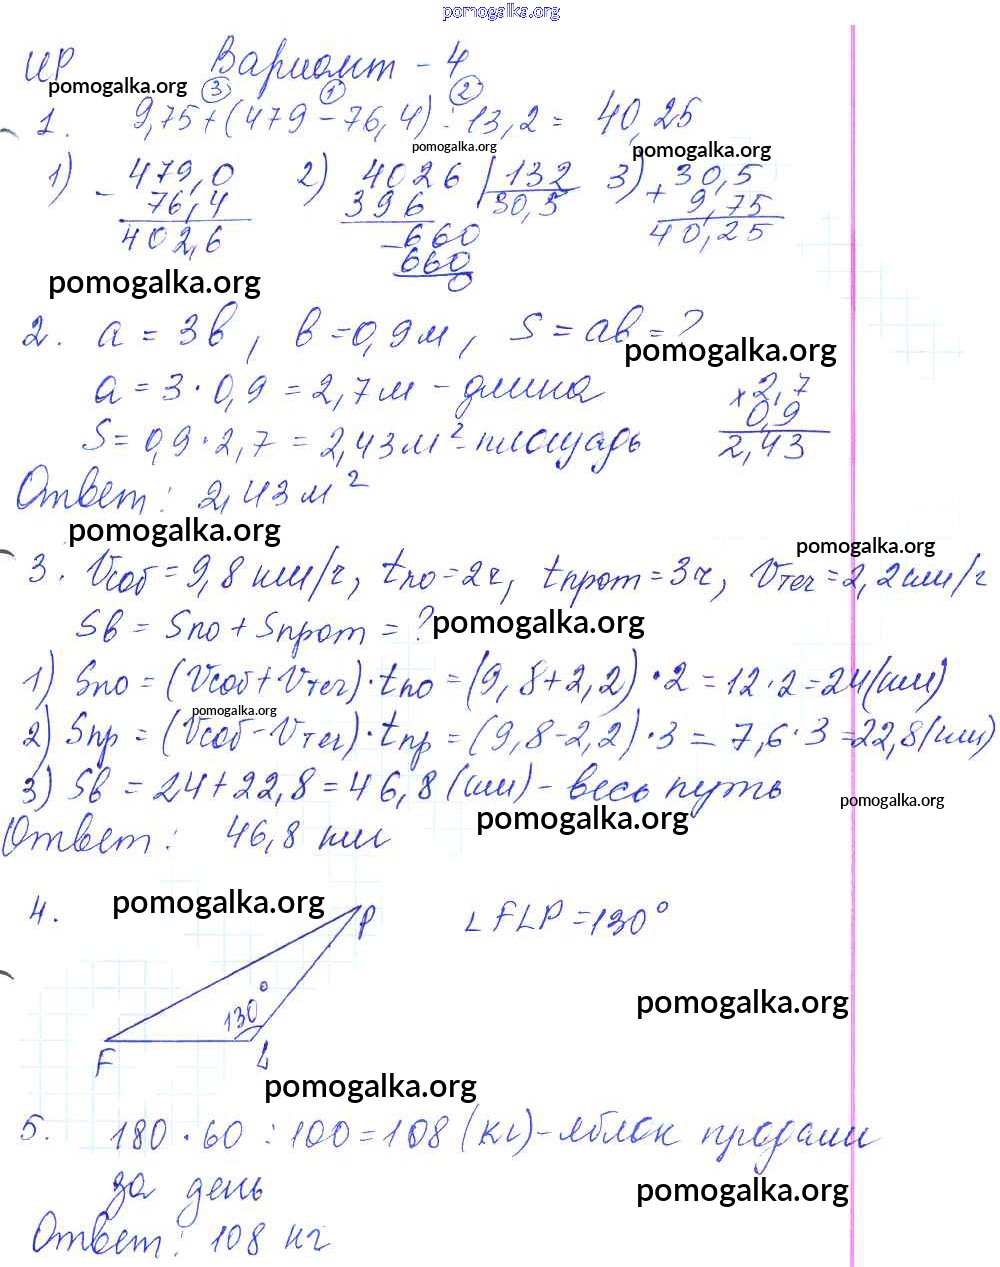 pomogalka.org
ИР Вариант - 4
pomogalka.org
③ ① ②
1. 9,75+(479-76,4):13,2= 40,25
pomogalka.org pomogalka.org
1) 479,0 2) 4026 | 132 3) 30,5
- 76,4 396 30,5 + 9,75
402,6 - 660 40,25
660
0
pomogalka.org
2. a = 3в, в=0,9м, S = ав = ?
pomogalka.org
a = 3 · 0,9 = 2,7м - длина × 2,7
0,9
S = 0,9 · 2,7 = 2,43м² - площадь 2,43
Ответ: 2,43 м²
pomogalka.org
pomogalka.org
3. Vсоб = 9,8 км/ч, tпо = 2ч, tпрот = 3ч, Vтеч = 2,2км/ч
Sв = Sпо + Sпрот = ? pomogalka.org
1) Sпо = (Vсоб + Vтеч) · tпо = (9,8+2,2) · 2 = 12 · 2 = 24(км)
pomogalka.org
2) Sпр = (Vсоб - Vтеч) · tпр = (9,8-2,2) · 3 = 7,6 · 3 = 22,8(км)
3) Sв = 24+22,8 = 46,8 (км) - весь путь
pomogalka.org pomogalka.org
Ответ: 46,8 км
4. pomogalka.org
P ∠ FLP = 130°
130°
pomogalka.org
F L
pomogalka.org
5. 180 · 60 : 100 = 108 (кг) - яблок продали
за день
pomogalka.org
Ответ: 108 кг